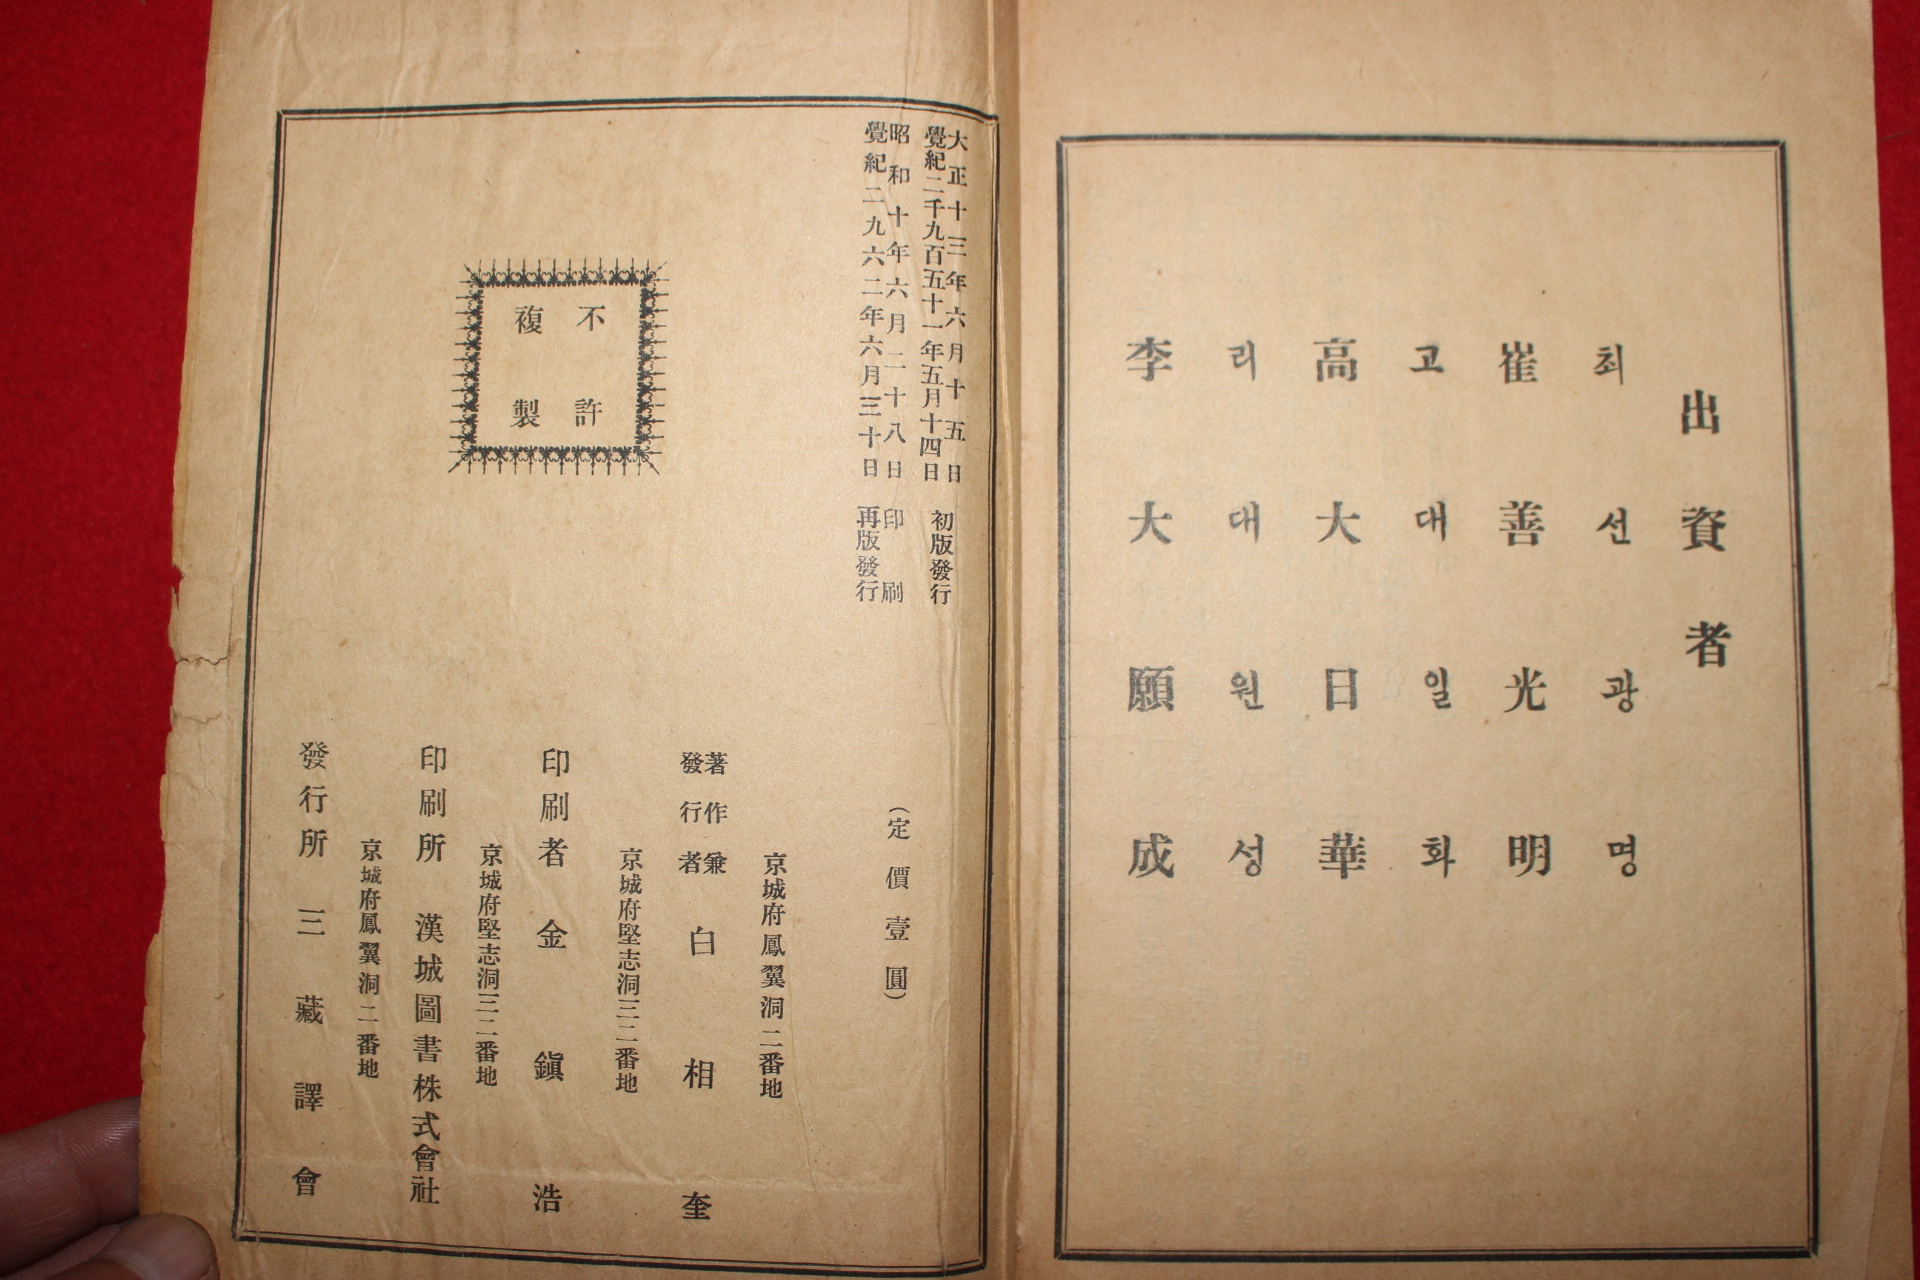 出資者
최선광명
崔善光明
고대일화
高大日華
리대원성
李大願成
大正十三年六月十五日
覺紀二千九百五十一年五月十四日
初版發行
昭和十年六月二十八日 印刷
覺紀二九六二年六月三十日 再版發行
不許
複製
(定價壹圓)
京城府鳳翼洞二番地
著作兼
發行者 白相奎
京城府堅志洞三二番地
印刷者 金鎭浩
京城府堅志洞三二番地
印刷所 漢城圖書株式會社
京城府鳳翼洞二番地
發行所 三藏譯會